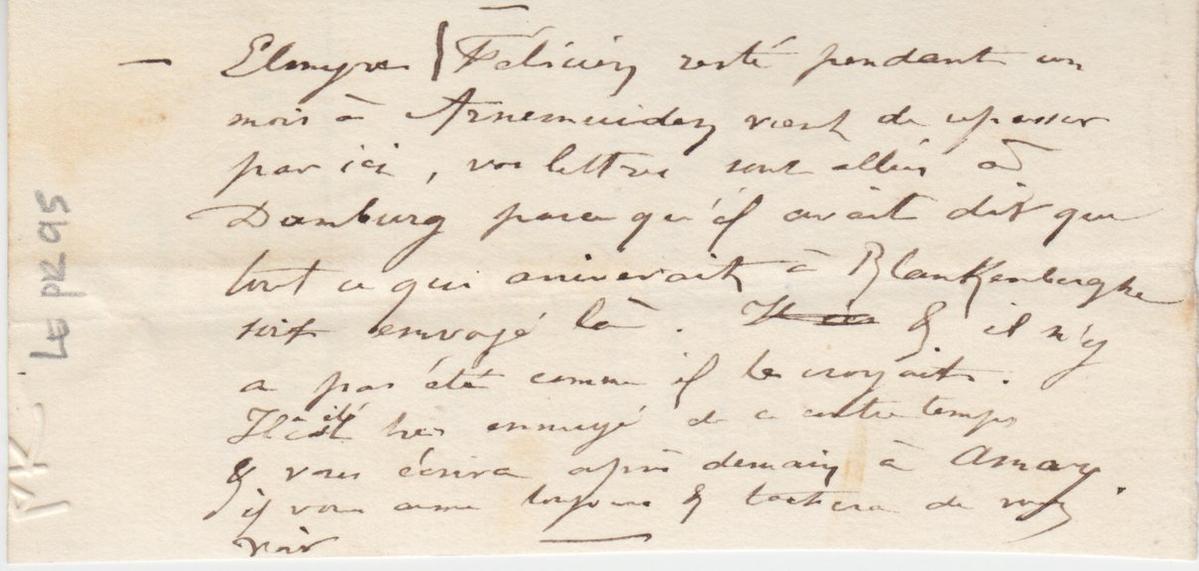 — Elmyre / Félicien resté pendant un
mois à Arnemuiden vient de repasser
par ici, vos lettres sont allées à
Domburg parce qu'il avait dit que
tout ce qui arriverait à Blankenberghe
soit envoyé là. Il & il n'y
a pas été comme il le croyait.
Il a été très ennuyé de ce contre temps
& vous écrira après demain à Amay.
il vous aime toujours & tachera de vous
voir
LE PR 95